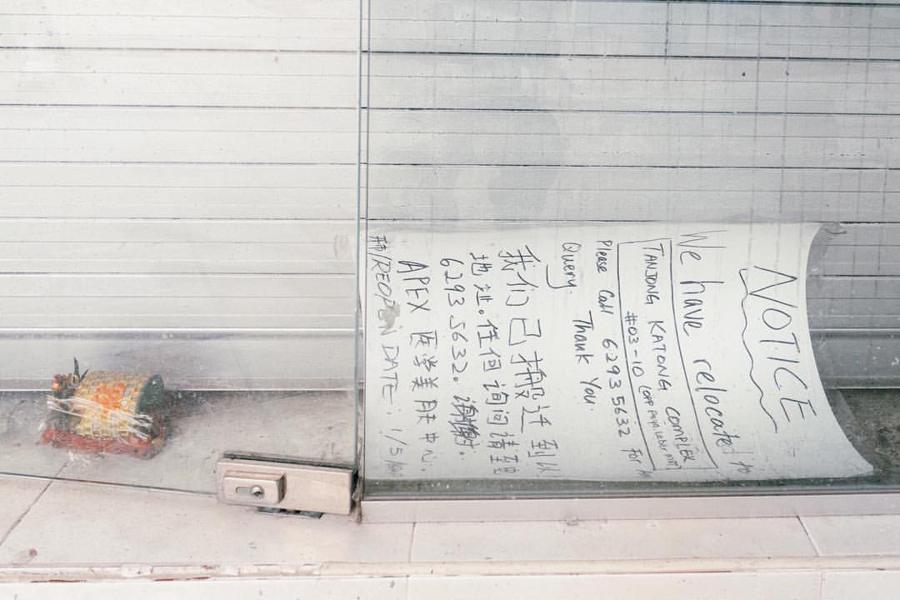 NOTICE
We have relocated to
TANJONG KATONG COMPLEX
#03-10 (OPP PAYA LEBAR
Please Call 6293 5632 For
Query. Thank You.
我们已搬迁到以
地池。任何询问请
6293 5632. 谢谢.
APEX 医学美肤中心.
REOPEN DATE: 1/5